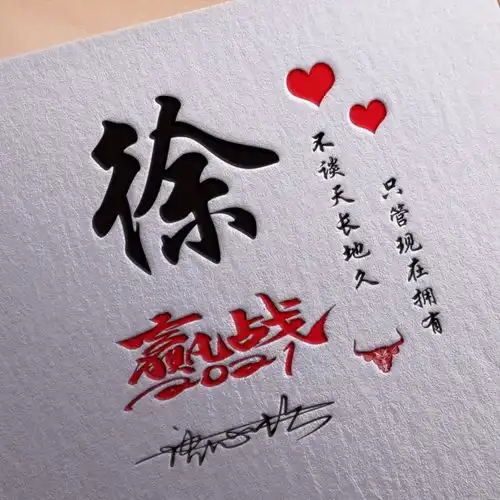 徐
不谈天长地久
只管现在拥有
赢战
2021